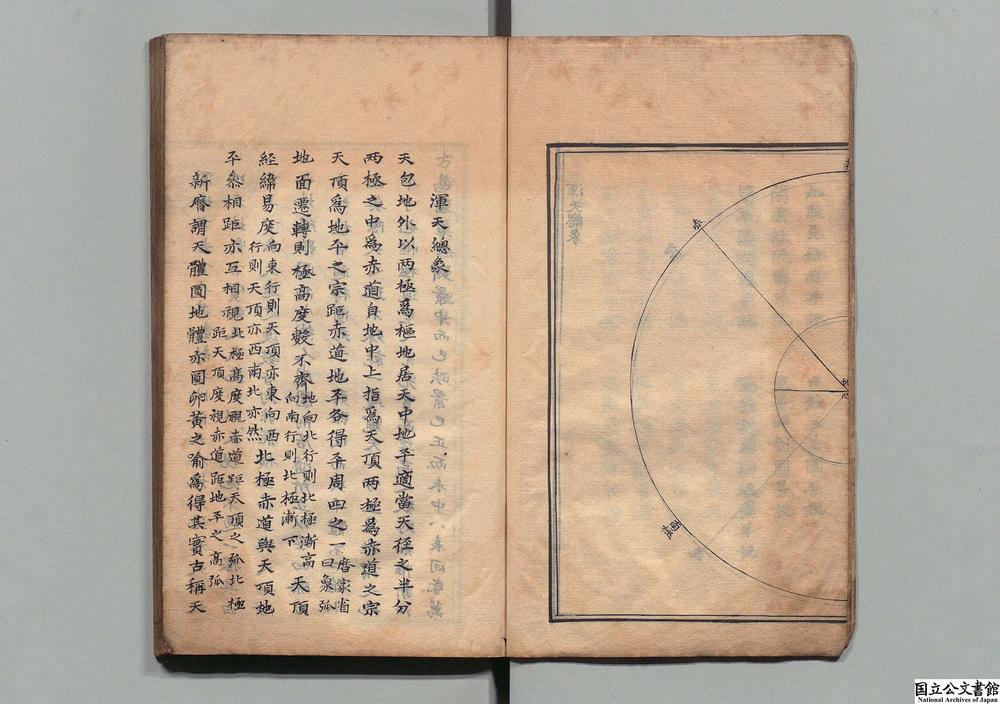 赤
南極
地心
渾天總象
天包地外以兩極爲樞地居天中地平適當天徑之半分
兩極之中爲赤道自地中上指爲天頂兩極爲赤道之宗
天頂爲地平之宗距赤道地平各得平周四之一曆家省曰象弧
地面遷轉則極高度數不齊地向北行則北極漸高向南行則北極漸下天頂
經緯易度向東行則天頂亦東向西行則天頂亦西南北亦然北極赤道與天頂地
平叅相距亦互相視北極高度視赤道距天頂之弧北極距天頂度視亦道距地平之高弧
新曆謂天體圓地體亦圓卵黃之喻爲得其實古稱天
国立公文書館
National Archives of Japan